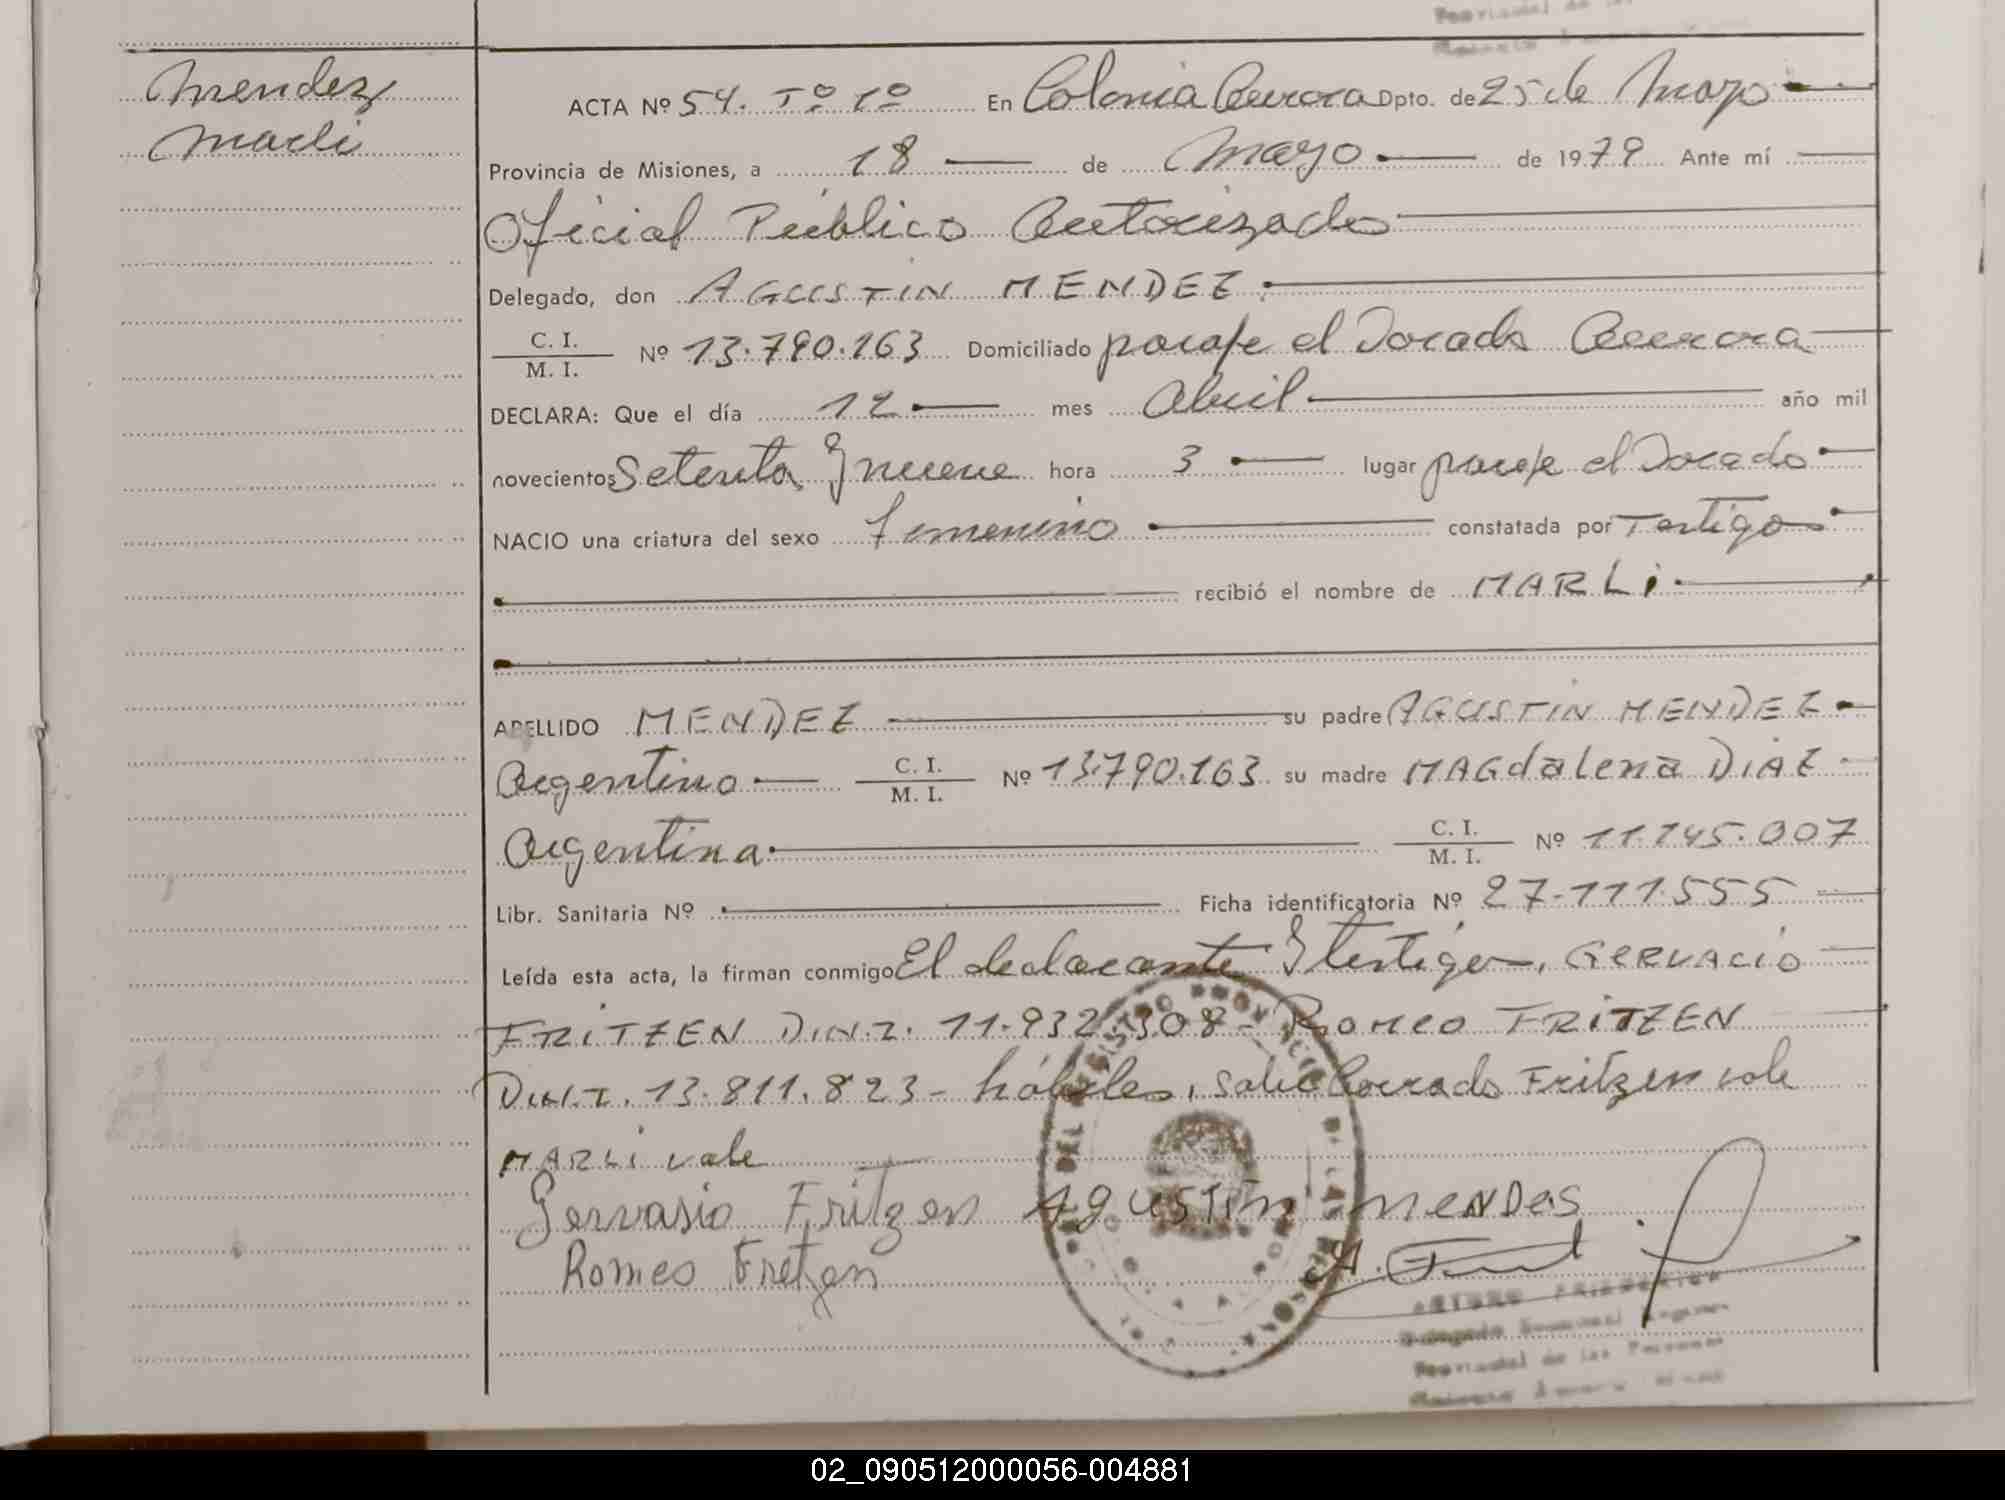 Mendez
Marli
ACTA Nº 54. Tº 1º En Colonia Aurora Dpto. de 25 de Mayo
Provincia de Misiones, a 18 de Mayo de 1979 Ante mí
Oficial Público Autorizado
Delegado, don AGUSTIN MENDEZ
C. I.
M. I.
Nº 13.790.163 Domiciliado paraje el Dorado Aurora
DECLARA: Que el día 12 mes Abril año mil
novecientos Setenta y nueve hora 3 lugar paraje el Dorado
NACIO una criatura del sexo femenino constatada por Testigos
recibió el nombre de MARLi
APELLIDO MENDEZ su padre AGUSTIN MENDEZ
Argentino C. I.
M. I.
Nº 13.790.163 su madre MAGdalena DiAZ
Argentina C. I.
M. I.
Nº 11.145.007
Libr. Sanitaria Nº Ficha identificatoria Nº 27-111.555
Leída esta acta, la firman conmigo El declarante y testigos, GERVACiO
FRiTZEN D.N.I. 11.932.308- ROMEO FRiTZEN
D.N.I. 13.811.823- hábiles, sobre borrado Fritzen vale
MARLi vale
Gervasio Fritzen Agustin MENDES
Romeo Fretzen
ARTURO
Provincial de las Personas
02_090512000056-004881